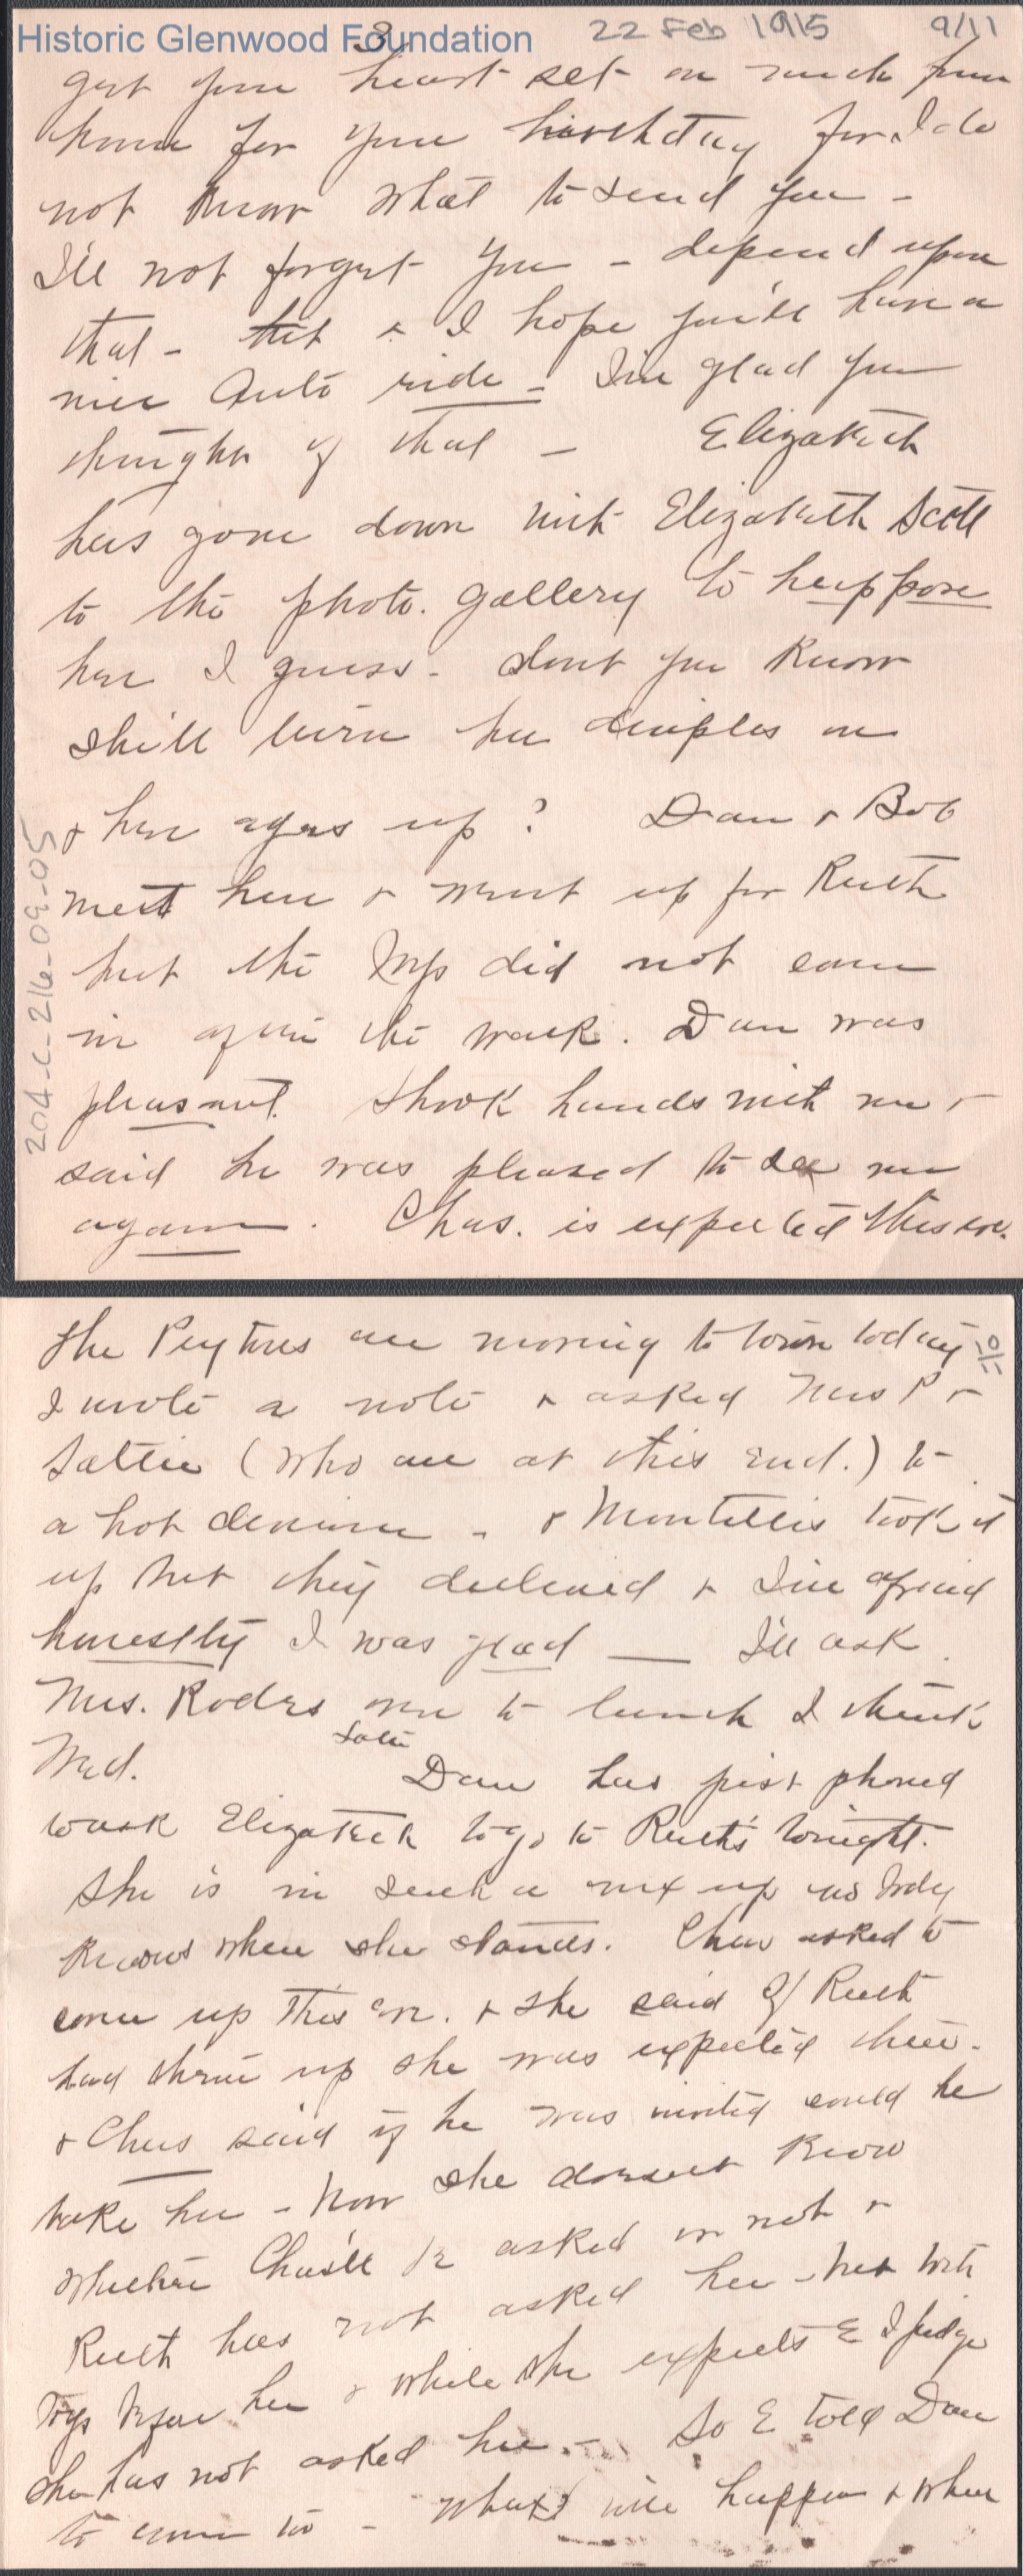 Historic Glenwood Foundation
3
22 Feb 1915
9/11
get your heart set on much from
home for your birthday for I do
not know what to send you -
I'll not forget you - depend upon
that - & I hope you'll have a
nice Auto ride - I'm glad you
thought of that - Elizabeth
has gone down with Elizabeth Scott
to the photo. gallery to help pose
her I guess - dont you know
she'll turn her dimples on
& her eyes up? Dan & Bob
meet here & went up for Ruth
but the boys did not come
in after the walk. Dan was
pleasant shook hands with me &
said he was pleased to see me
again. Chas. is expected this eve.
204-C-216-09-05
The Peytons are moving to town today
10/11
I wrote a note & asked Mrs P &
Sallie (who are at this end.) to
a hot dinner - & took it
up but they declined & I'm afraid
honestly I was glad — I'll ask
Mrs. Rodes over to lunch I think
Wed. Later Dan has just phoned
to ask Elizabeth to go to Ruth's tonight.
She is in such a mix up no body
knows where she stands. Chas asked to
come up this eve. & she said if Ruth
had she was expected there -
& Chas said if he was invited could he
take her - Now she doesn't know
whether Chas'll be asked or not &
Ruth has not asked her - but
boys before her & while she expects E I judge
she has not asked her. - So E told Dan
to come to - What will happen & when